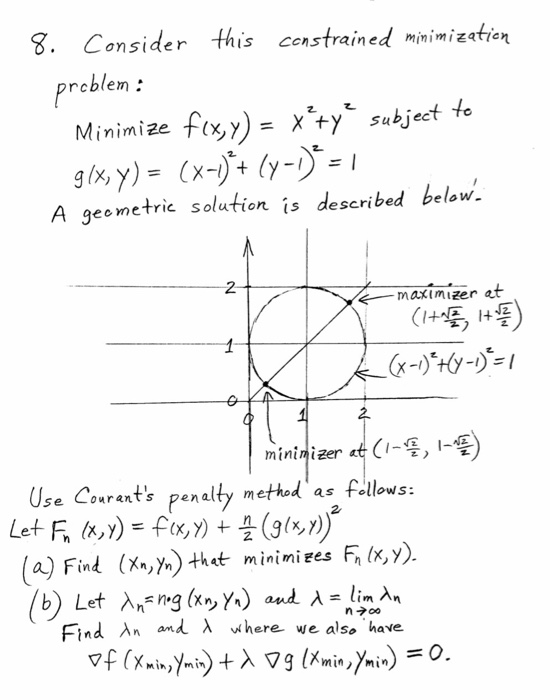 8. Consider this constrained minimization
problem:
Minimize f(x,y) = x²+y² subject to
g(x,y) = (x-1)²+(y-1)²=1
A geometric solution is described below.
2
maximizer at
(1+√2/2, 1+√2/2)
1
(x-1)²+(y-1)²=1
0
0 1 2
minimizer at (1-√2/2, 1-√2/2)
Use Courant's penalty method as follows:
Let Fn (x,y) = f(x,y) + n/2 (g(x,y))²
(a) Find (xn,yn) that minimizes Fn (x,y).
(b) Let λn=n•g(xn,yn) and λ = lim λn
n→∞
Find λn and λ where we also have
∇f(xmin,ymin)+λ ∇g(xmin,ymin) = 0.